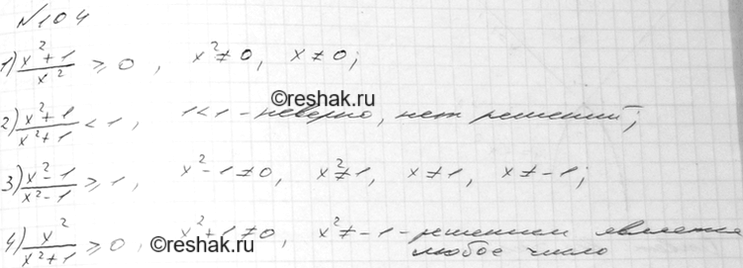 №104
1) (x²+1)/x² ≥ 0, x² ≠ 0, x ≠ 0;
©reshak.ru
2) (x²+1)/(x²+1) < 1, 1<1 - неверно, нет решений;
3) (x²-1)/(x²-1) ≥ 1, x²-1 ≠ 0, x² ≠ 1, x ≠ 1, x ≠ -1;
4) x²/(x²+1) ≥ 0, x²+1 ≠ 0, x² ≠ -1 - решением является
©reshak.ru любое число